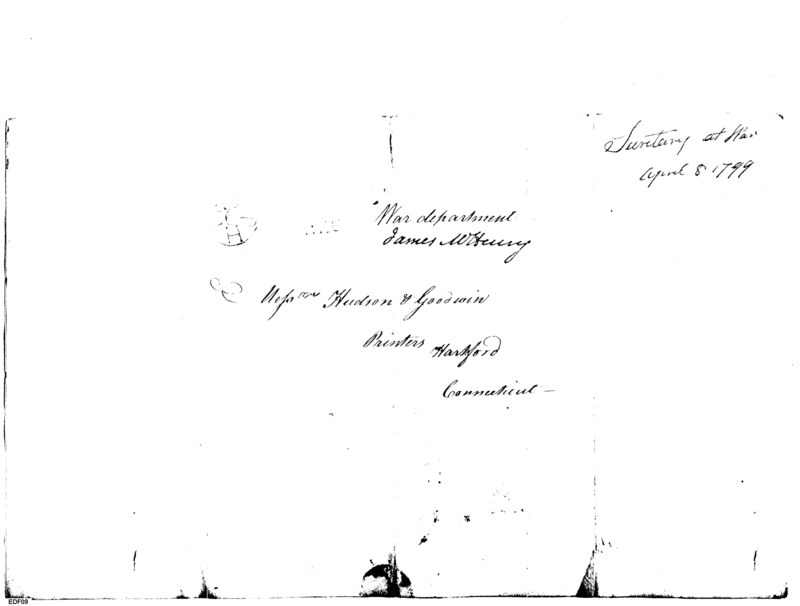 Secretary at War
April 8 1799
War department
James McHenry
Messrs Hudson & Goodwin
Printers Hartford
Connecticut —
EDF09